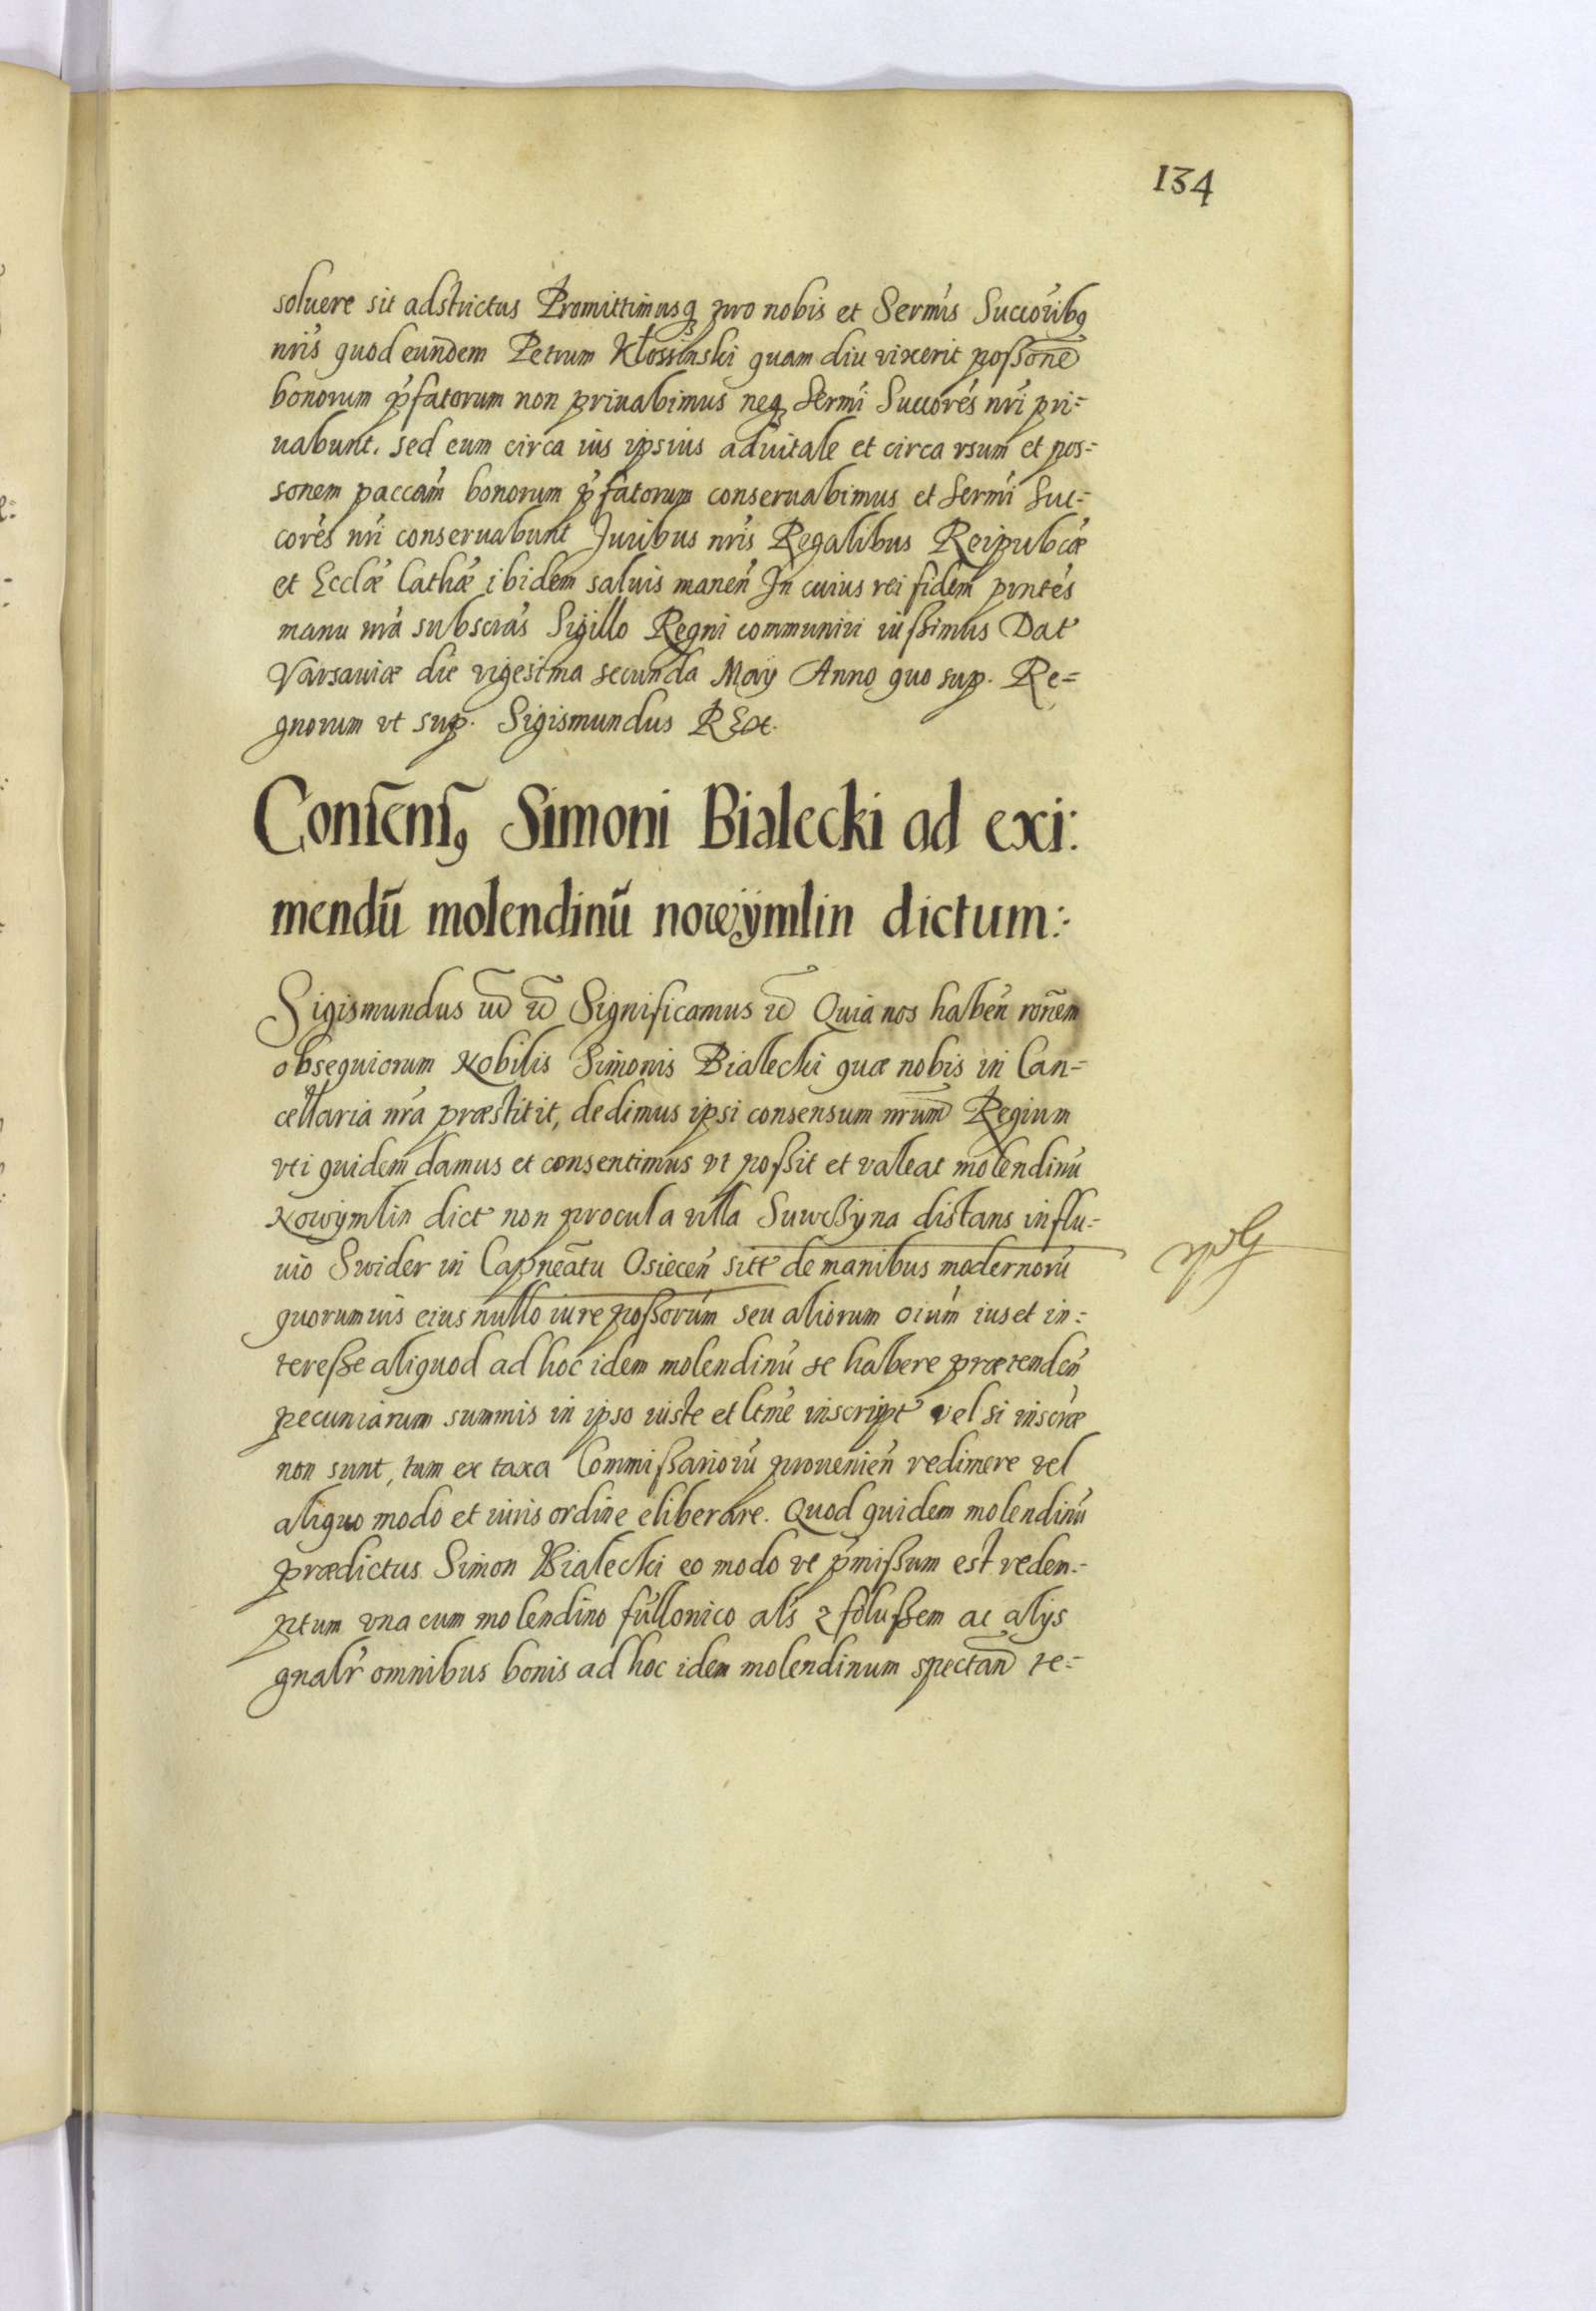 134
soluere sit adstrictus Promittimusq₃ pro nobis et Serm̃is Succor̃ibꝫ
nr̃is quod eundem Petrum Kłossinski quam diu vixerit possonẽ
bonorum p̃fatorum non priuabimus neq₃ Serm̃i Succor̃es nr̃i pri=
uabunt, sed eum circa ius ipsius aduitale et circa vsum et pos=
sonem paccam̃ bonorum p̃fatorum conseruabimus et Serm̃i Suc=
cor̃es nr̃i conseruabunt Juribus nr̃is Regalibus Reipubcæ̃
et Ecclæ̃ Cathæ̃ ibidem saluis maneñ In cuius rei fidem pñtes
manu nr̃a subscr̃as Sigillo Regni communiri iussimus Dat̃
Varsauiæ die vigesima secunda Maÿ Anno quo sup. Re=
gnorum vt sup. Sigismundus REx.
Consensꝫ Simoni Bialecki ad exi:
mendũ molendinũ nowÿmlin dictum:
Sigismundus Significamus Quia nos habeñ roñem
obsequiorum Nobilis Simonis Bialecki quæ nobis in Can=
cellaria nr̃a præstitit, dedimus ipsi consensum nr̃um Regium
vti quidem damus et consentimus vt possit et valeat molendinũ
Nowÿmlin dict̃ non procul a villa Suwßÿna distans in flu=
uio Swider in Capneatũ Osieceñ sitt̃ de manibus modernorũ
quorumuis eius nullo iure possor̃um seu aliorum oium̃ ius et in=
teresse aliquod ad hoc idem molendinũ se habere prætendeñ
pecuniarum summis in ipso iuste et ltme̋ inscript̃ vel si inscr̃æ
non sunt, tum ex taxa Commissariorũ prouenieñ redimere vel
aliquo modo et iuris ordine eliberare. Quod quidem molendinũ
prædictus Simon Bialecki eo modo vt p̃missum est redem=
ptum vna cum molendino fullonico als̃ z folussem ac alÿs
gnalr̃ omnibus bonis ad hoc idem molendinum spectañ te=